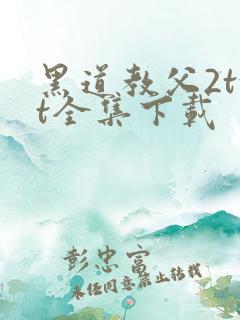 黑道教父2t
t全集下载
彭忠富
未经同意禁止转载